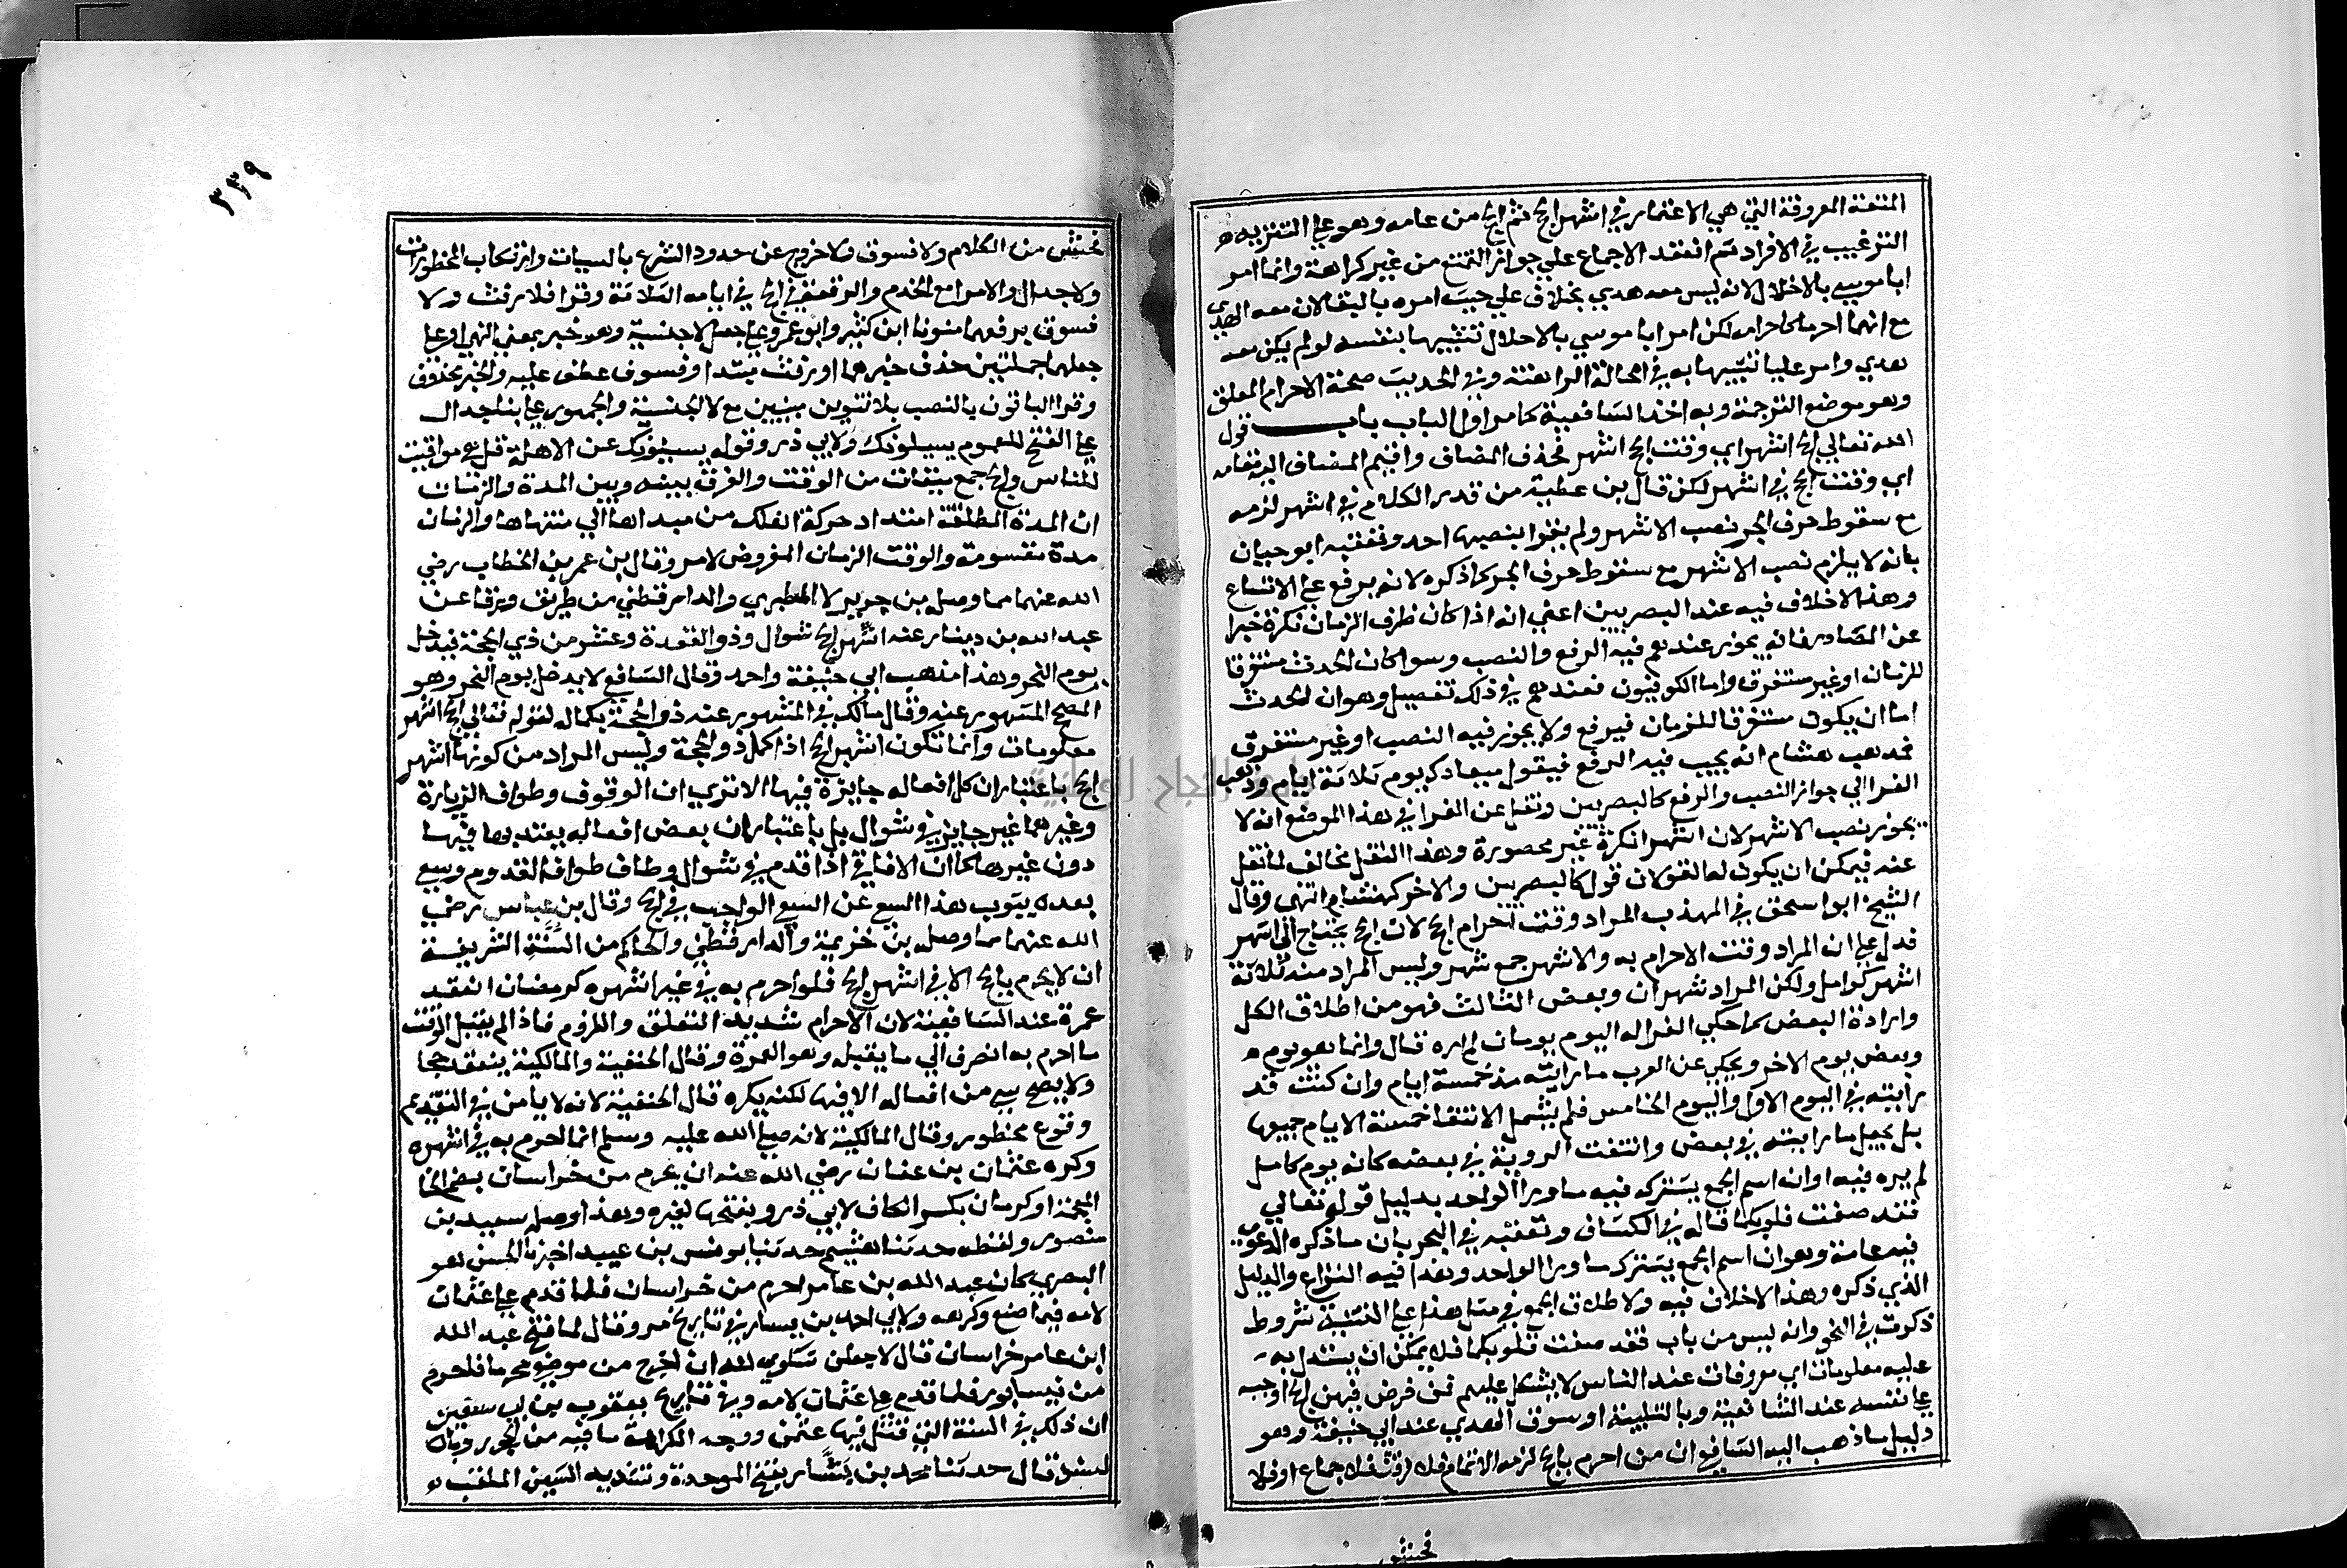 المتعة المعروفة التي هي الاعتمار في اشهر الحج ثم الحج من عامه وهو علي التنزيه
الترغيب في الافراد ثم انعقد الاجماع علي جواز التمتع من غير كراهة وانما امر
ابا موسي بالاحلال لانه ليس معه هدي بخلاف علي حيث امره بالبقا لان معه الهدي
مع انهما احرما كاحرامه لكن امر ابا موسي بالاحلال تشبيها بنفسه لو لم يكن معه
هدي وامر عليا تشبيها به في الحالة الراهنة وفي الحديث صحة الاحرام المعلق
وهو موضع الترجمة وبه اخذ الشافعية كما مر اول الباب باب قول
الله تعالي الحج اشهر اي وقت الحج اشهر فحذف المضاف واقيم المضاف اليه مقامه
اي وقت الحج في اشهر لكن قال بن عطية من قدر الكلام في اشهر لزمه
مع سقوط حرف الجر نصب الاشهر ولم يقرا بنصبها احد وتعقبه ابو حيان
بانه لا يلزم نصب الاشهر مع سقوط حرف الجر كما ذكره لانه يرفع علي الاتساع
وهذا لاخلاف فيه عند البصريين اعني انه اذا كان ظرف الزمان نكرة خبرا
عن المصادر فانه يجوز عندهم فيه الرفع والنصب وسوا كان الحدث مستغرقا
للزمان او غير مستغرق واما الكوفيون فعندهم في ذلك تفصيل وهو ان الحدث
اما ان يكون مستغرقا للزمان فيرفع ولا يجوز فيه النصب او غير مستغرق
فمذهب هشام انه يجب فيه الرفع فيقول ميعادك يوم ثلاثة ايام وذهب
الفرا الي جواز النصب والرفع كالبصريين ونقل عن الفرا في هذا الموضع انه لا
يجوز نصب الاشهر لان اشهرا نكرة غير محصورة وهذا النقل مخالف لما نقل
عنه فيمكن ان يكون له القولان قول كالبصريين والاخر كهشام انتهي وقال
الشيخ ابو اسحق في المهذب المراد وقت احرام الحج لان الحج لا يحتاج الي اشهر
فدل علي ان المراد وقت الاحرام به والاشهر جمع شهر وليس المراد منه ثلاثة
اشهر كوامل ولكن المراد شهران وبعض الثالث فهو من اطلاق الكل
وارادة البعض كما حكي الفرا له اليوم يومان لم اره قال وانما هو يوم
وبعض يوم الاخر ويحكي عن العرب ما رايته مذ خمسة ايام وان كنت قد
رايته في اليوم الاول واليوم الخامس فلم يشمل الانتفا خمسة الايام جميعها
بل يجعل ما رايته في بعض وانتفت الروية في بعضه كانه يوم كامل
لم يره فيه او ان اسم الجمع يشترك فيه ما ورا الواحد بدليل قوله تعالي
فقد صغت قلوبكما قاله في الكشاف وتعقبه في البحر بان ما ذكره الدعوي
فيه عامة وهو ان اسم الجمع يشترك ما ورا الواحد وهذا فيه النزاع والدليل
الذي ذكره وهذا لاخلاف فيه ولا طلاق الجمع في مثل هذا علي التثنية شروط
ذكرت في النحو وانه ليس من باب فقد صغت قلوبكما فلا يمكن ان يستدل به
عليه معلومات اي معروفات عند الناس لا يشكل عليهم فمن فرض فيهن الحج اوجبه
علي نفسه عند الشافعية وبالتلبية او سوق الهدي عند ابي حنيفة وهو
دليل ما ذهب اليه الشافعي ان من احرم بالحج لزمه الاتمام فلا رفث فلا جماع او فلا
فحش
٣٣٩
فحش من الكلام ولا فسوق ولا خروج عن حدود الشرع بالسيات وارتكاب المحظورات
ولا جدال ولا مرا مع الخدم والرفقة في الحج في ايامه الثلاثة وقرا فلا رفث ولا
فسوق برفعهما منونا ابن كثير وابو عمرو علي جعل لا جنسية وهو خبر بمعني النهي او علي
جعلهما جملتين حذف خبرهما او رفث مبتدا وفسوف عطف عليه والخبر محذوف
وقرا الباقون بالنصب بلا تنوين مبنيين مع لا الجنسية والجمهور علي بنا جدال
علي الفتح للعموم يسيلونك ولابي ذر وقوله يسيلونك عن الاهلة قل هي مواقيت
للناس والحج جمع ميقات من الوقت والفرق بينه وبين المدة والزمان
ان المدة المطلقة امتداد حركة الفلك من مبداها الي منتهاها والزمان
مدة مقسومة والوقت الزمان المفروض لامر وقال بن عمر بن الخطاب رضي
الله عنهما مما وصله بن جرير الطبري والدارقطني من طريق ورقا عن
عبد الله بن دينار عنه اشهر الحج شوال وذو القعدة وعشر من ذي الحجة فيدخل
يوم النحر وهذا مذهب ابي حنيفة واحمد وقال الشافعي لا يدخل يوم النحر وهو
المصحح المشهور عنه وقال مالك في المشهور عنه ذو الحجة بكماله لقوله تعالي الحج اشهر
معلومات وانما تكون اشهر الحج اذا كمل ذو الحجة وليس المراد من كونها اشهر
الحج باعتبار ان كل افعاله جايزة فيها الا تري ان الوقوف وطواف الزيارة
وغيرهما غير جايز في شوال بل باعتبار ان بعض افعاله يعتد بها فيها
دون غيرها كما ان الافاقي اذا قدم في شوال وطاف طواف القدوم وسعي
بعده ينوب هذا السعي عن السعي الواجب في الحج وقال بن عباس رضي
الله عنهما مما وصله بن خزيمة والدارقطني والحاكم من السنة الشريفة
ان لا يحرم بالحج الا في اشهر الحج فلو احرم به في غير اشهره كرمضان انعقد
عمرة عند الشافعية لان الاحرام شديد التعلق واللزوم فاذا لم يقبل الوقت
ما احرم به انصرف الي ما يقبله وهو العمرة وقال الحنفية والمالكية ينعقد حجا
ولا يصح شي من افعاله الا فيها لكنه يكره قال الحنفية لانه لا يامن في التقديم
وقوع محظور وقال المالكية لانه صلي الله عليه وسلم انما احرم به في اشهره
وكره عثمان بن عفان رضي الله عنه ان يحرم من خراسان بضم الخا
المعجمة او كرمان بكسر الكاف لابي ذر وبفتحها لغيره وهذا وصله سعيد بن
منصور ولفظه حدثنا هشيم حدثنا يونس بن عبيد اخبرنا الحسن هو
البصري كان عبد الله بن عامر احرم من خراسان فلما قدم علي عثمان
لامه فيما صنع وكرهه ولابي احمد بن سيار في تاريخ مرو قال لما فتح عبد الله
ابن عامر خراسان قال لاجعلن شكري لله ان اخرج من موضعي محرما فاحرم
من نيسابور فلما قدم علي عثمان لامه وفي تاريخ يعقوب بن سفين
ان ذلك في السنة التي قتل فيها عثمن ووجه الكراهة ما فيه من الحرج وبال
لسند قال حدثنا محمد بن بشار بفتح الموحدة وتشديد الشين الملقب